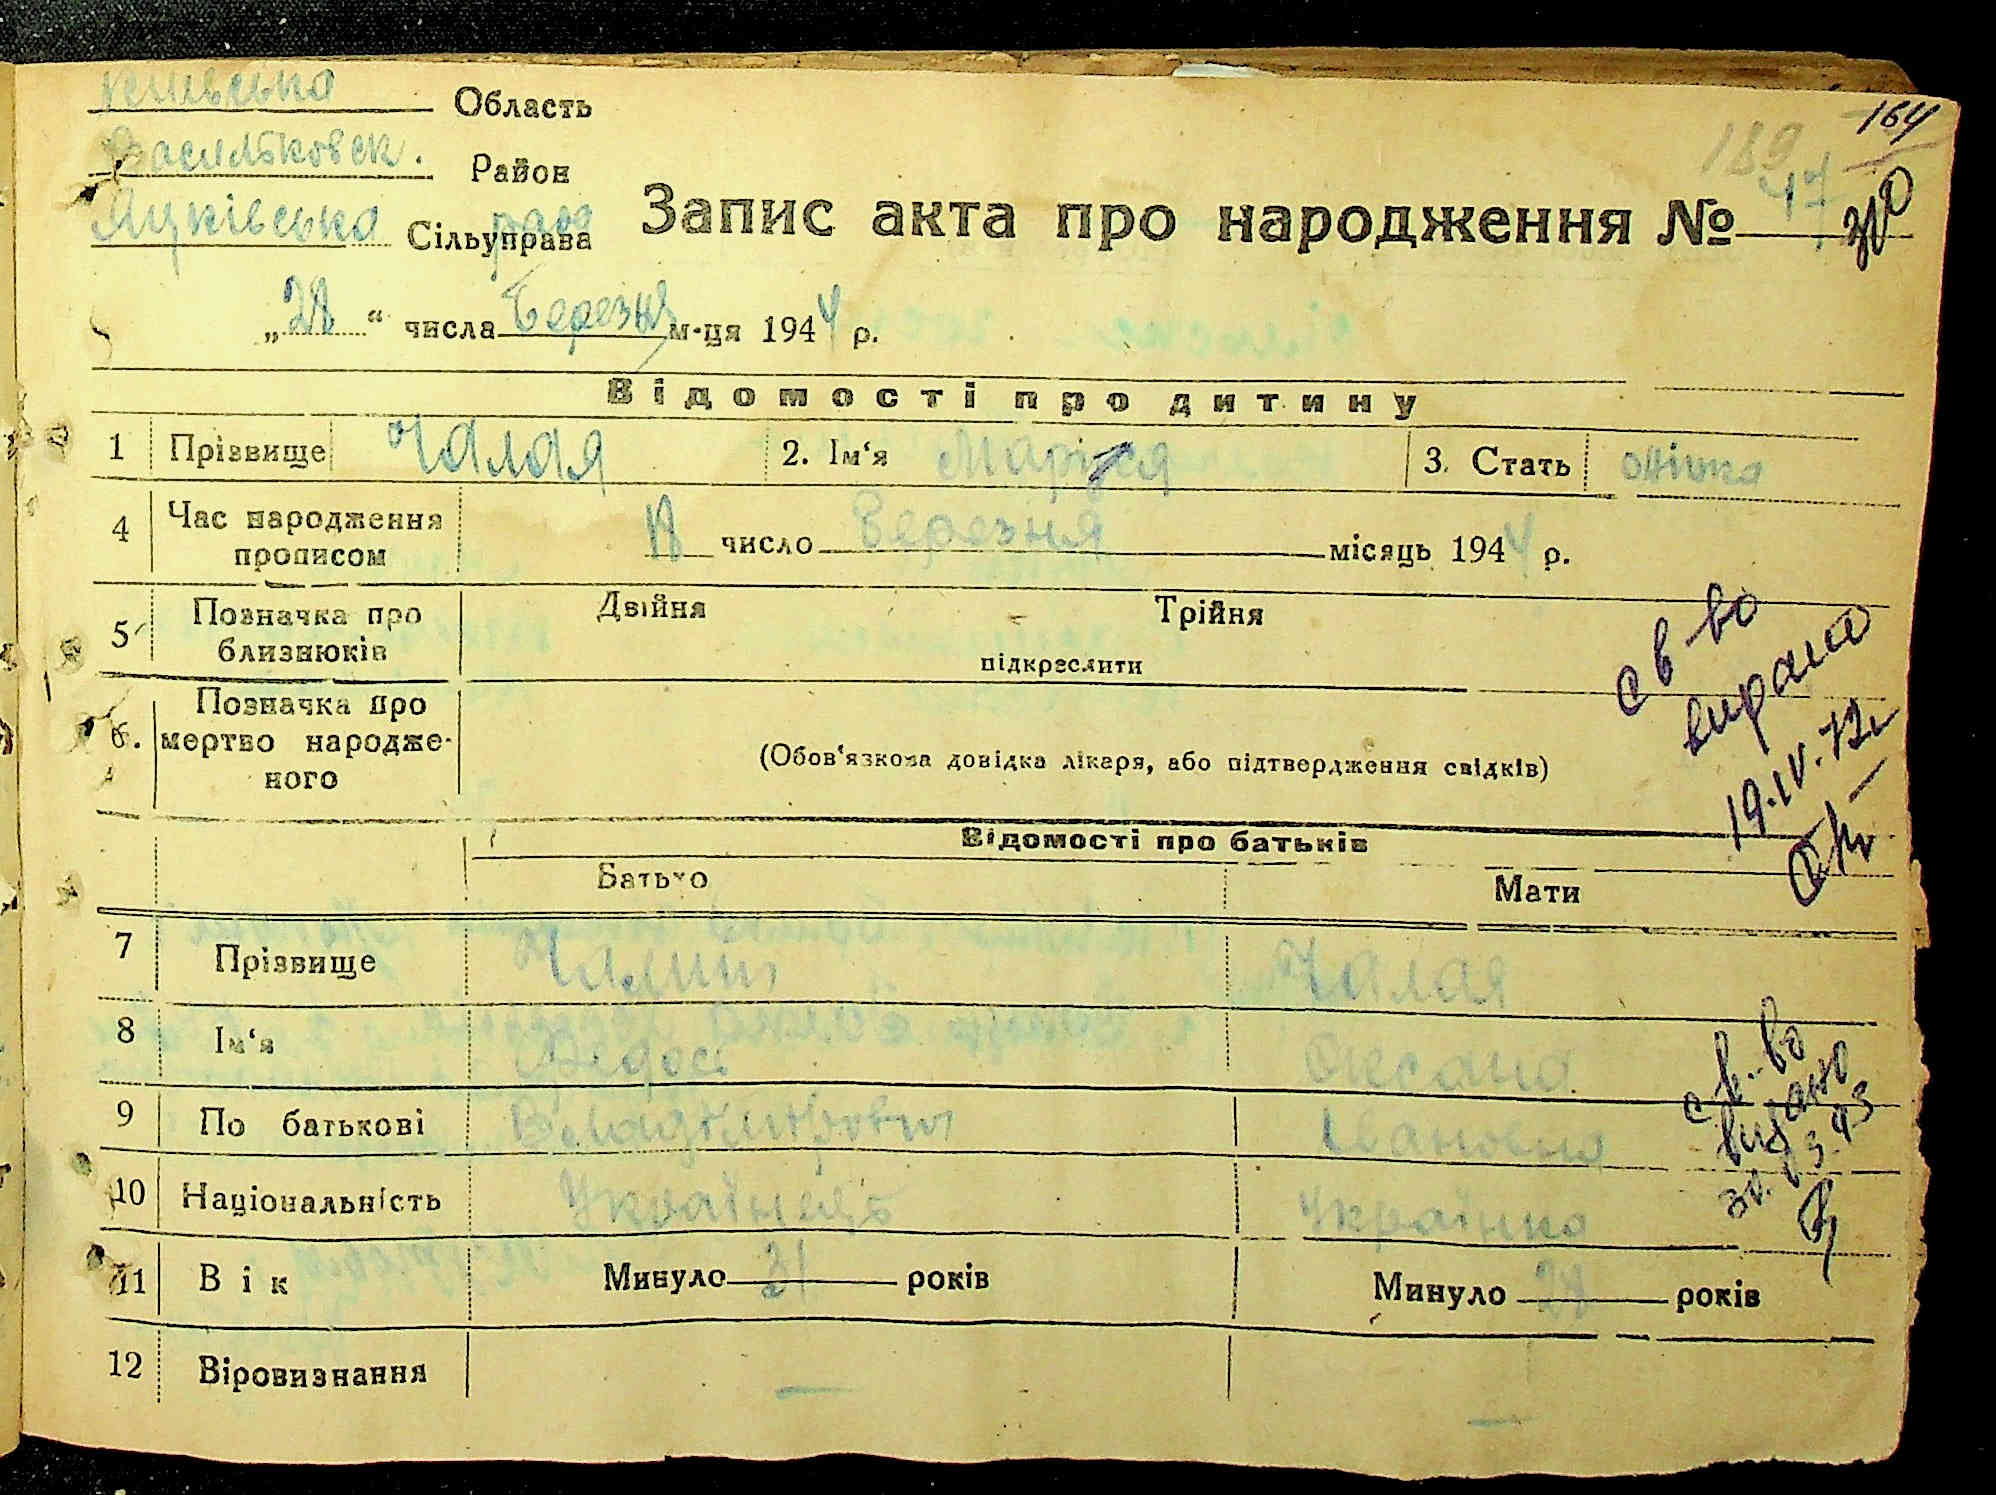 Київська Область
Васильковск. Район
Яцківська Сільуправа рада
164
189
47
310
Запис акта про народження №
„28“ числа Березня м-ця 1944 р.
Відомості про дитину
1 Прізвище Чалая 2. Ім‘я Маруся 3. Стать жінка
4 Час народження прописом 18 число Березня місяць 1944 р.
5 Позначка про близнюків Двійня Трійня
підкреслити
6. Позначка про мертво народженого (Обов‘язкова довідка лікаря, або підтвердження свідків)
св-во
видано
19.IV.72г
Відомості про батьків
Батько Мати
7 Прізвище Чалий Чалая
8 Ім‘я Федось Оксана
9 По батькові Владімірович Івановна
10 Національність Українець Українка
св-во
видано
30.03.93
11 Вік Минуло 31 років Минуло 28 років
12 Віровизнання — —